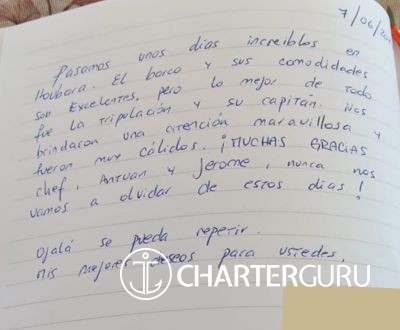 7/06/20
Pasamos unos dias increibles en
Houbara. El barco y sus comodidades
son Excelentes, pero lo mejor de todo
fue la tripulación y su capitán. Nos
brindaron una atención maravillosa y
fueron muy cálidos. ¡MUCHAS GRACIAS
chef, Antuan y Jerome, nunca nos
vamos a olvidar de estos dias!
Ojalá se pueda repetir.
mis mejores deseos para ustedes.
CHARTERGURU